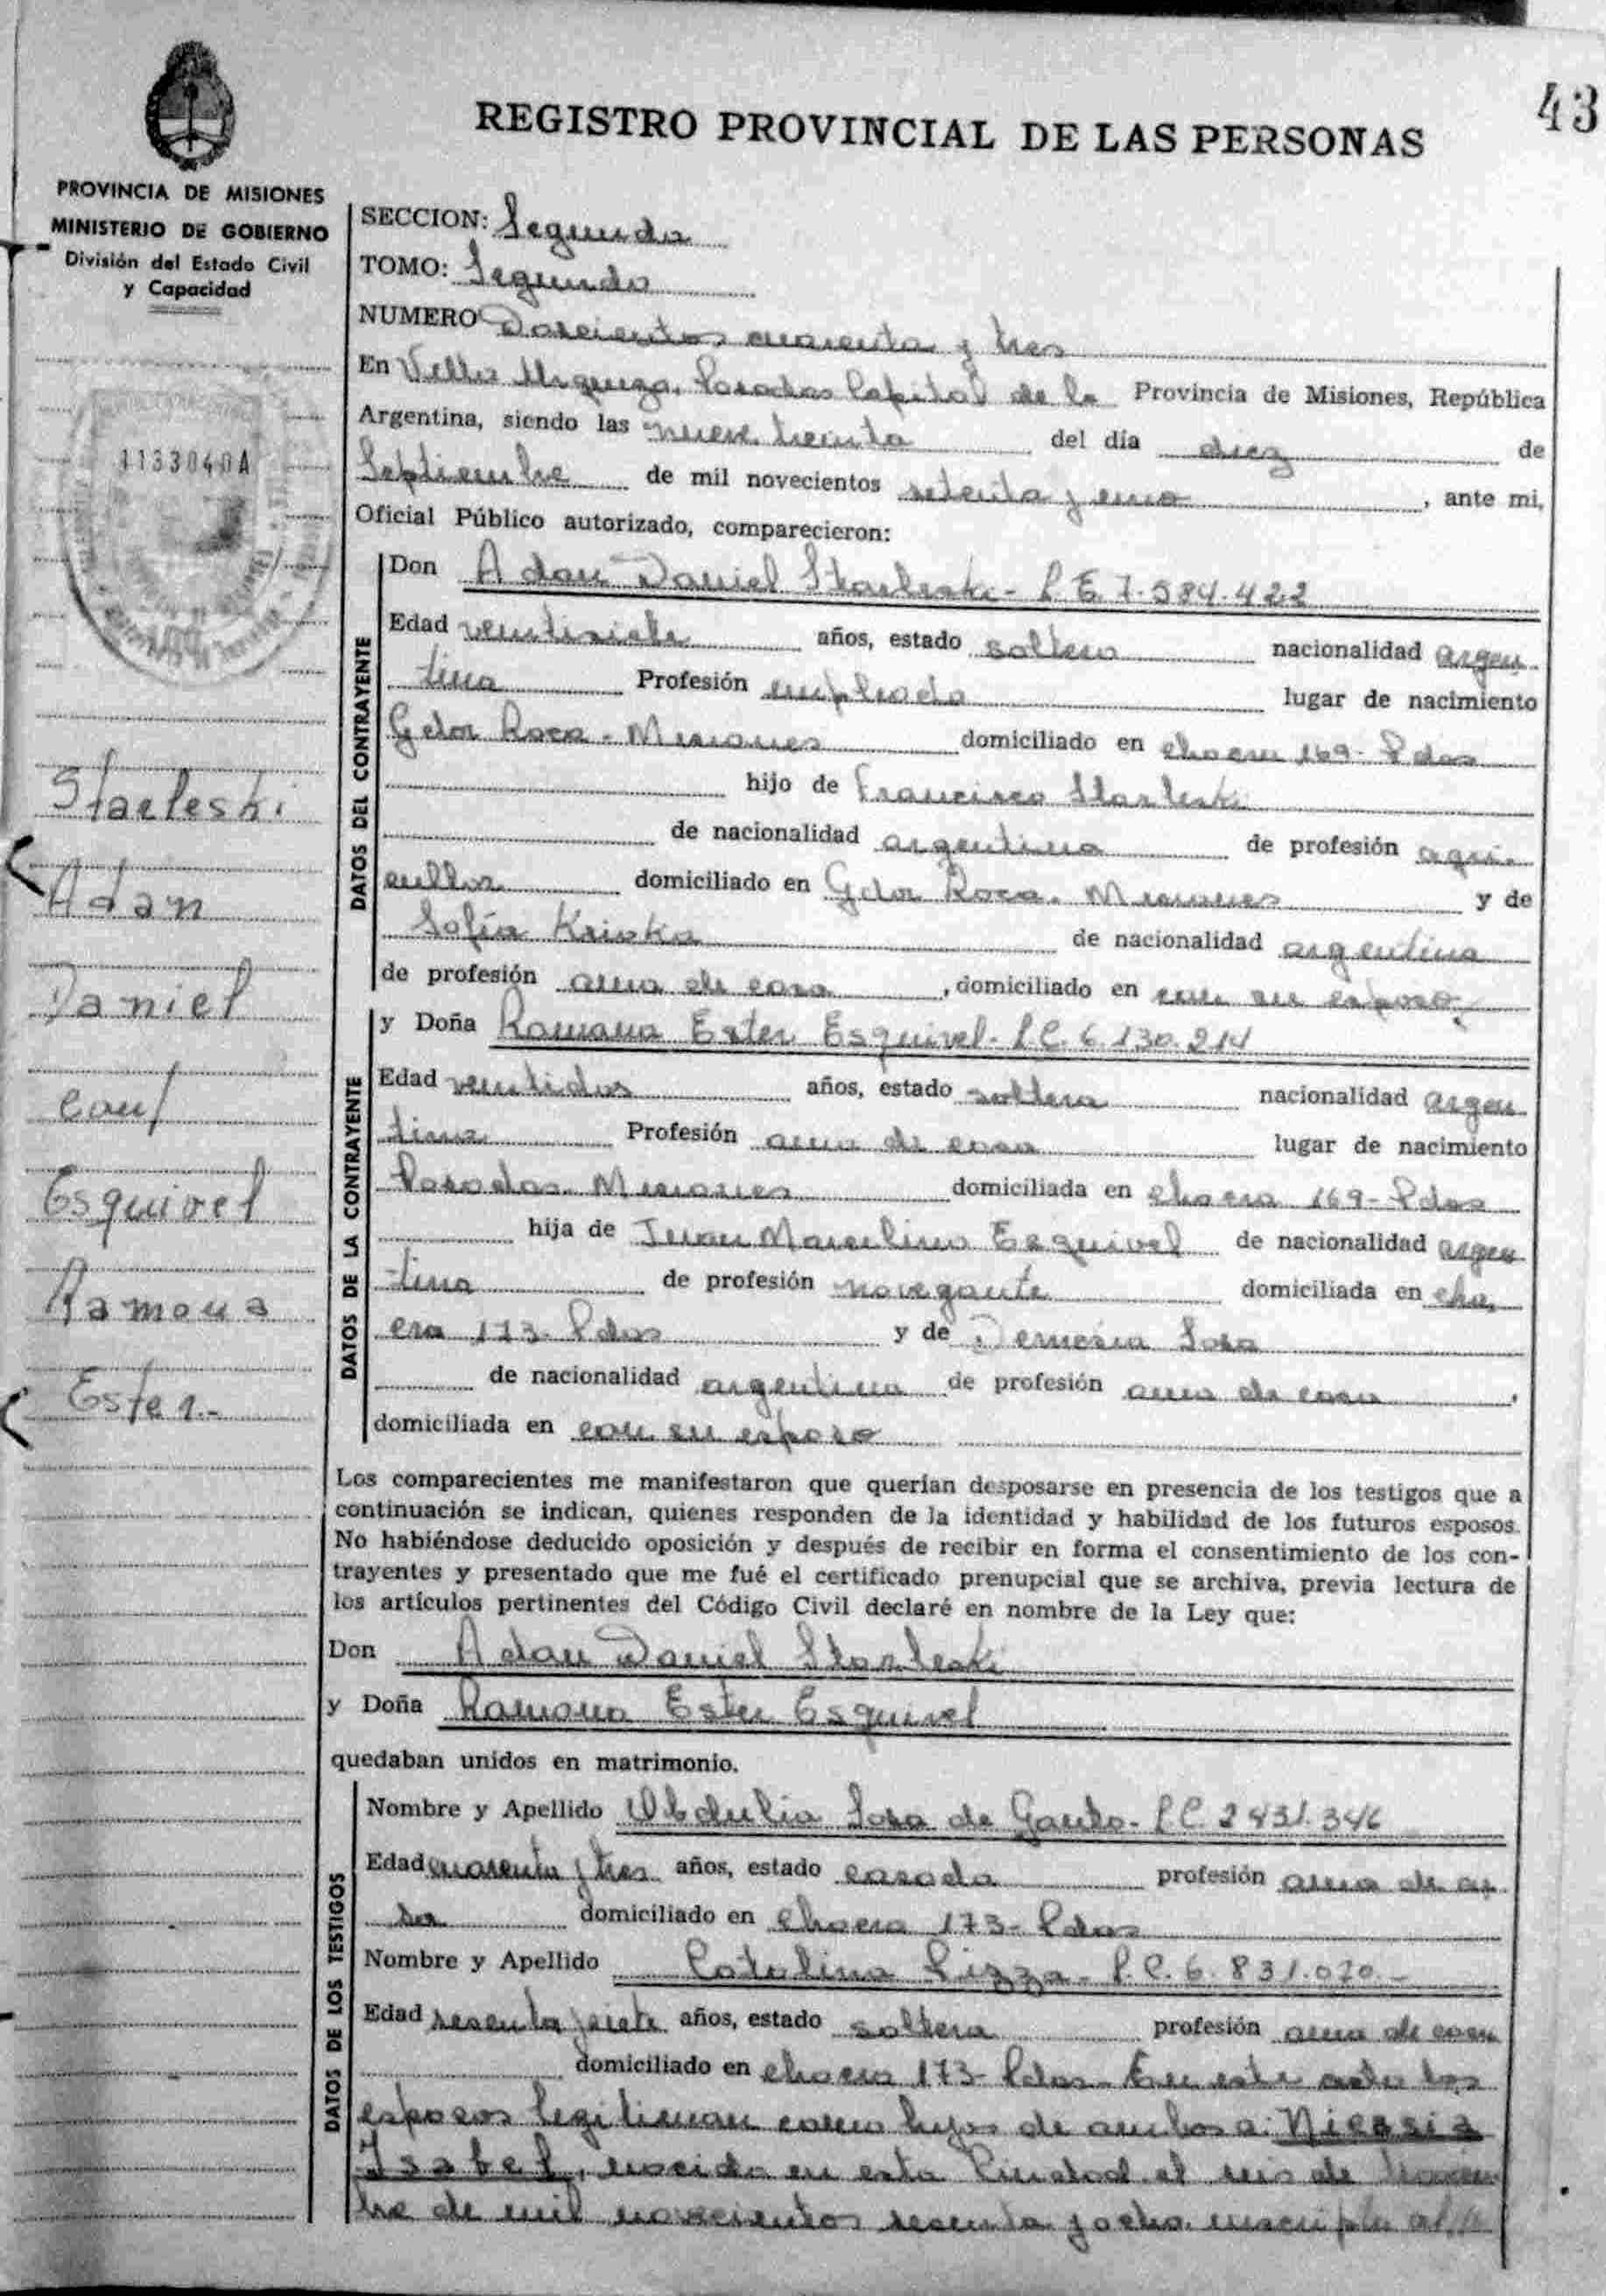 43
REGISTRO PROVINCIAL DE LAS PERSONAS
PROVINCIA DE MISIONES
MINISTERIO DE GOBIERNO
División del Estado Civil
y Capacidad
1133040A
Staeleski
Adan
Daniel
con/
Esquivel
Ramona
Ester.-
SECCION: Segunda
TOMO: Segundo
NUMERO Doscientos cuarenta y tres
En Villa Urquiza, Posadas Capital de la Provincia de Misiones, República
Argentina, siendo las nueve treinta del día diez de
Septiembre de mil novecientos setenta y uno, ante mi,
Oficial Público autorizado, comparecieron:
DATOS DEL CONTRAYENTE
Don Adan Daniel Starleski - L.E. 7.584.422
Edad ventisiete años, estado soltero nacionalidad argen
tina Profesión empleado lugar de nacimiento
Gdor Roca - Misiones domiciliado en chacra 169 - Pdas
hijo de Francisco Starleski
de nacionalidad argentina de profesión agri-
cultor domiciliado en Gdor Roca - Misiones y de
Sofía de nacionalidad argentina
de profesión ama de casa, domiciliado en con su esposo
DATOS DE LA CONTRAYENTE
y Doña Ramona Ester Esquivel - L.C. 6.130.214
Edad ventidos años, estado soltera nacionalidad argen
tina Profesión ama de casa lugar de nacimiento
Posadas Misiones domiciliada en chacra 169 - Pdas
hija de Juan Marcelino Esquivel de nacionalidad argen
tina de profesión navegante domiciliada en cha,
cra 173 - Pdas y de Sosa
de nacionalidad argentina de profesión ama de casa,
domiciliada en con su esposo
Los comparecientes me manifestaron que querían desposarse en presencia de los testigos que a
continuación se indican, quienes responden de la identidad y habilidad de los futuros esposos.
No habiéndose deducido oposición y después de recibir en forma el consentimiento de los con-
trayentes y presentado que me fué el certificado prenupcial que se archiva, previa lectura de
los artículos pertinentes del Código Civil declaré en nombre de la Ley que:
Don Adan Daniel Starleski
y Doña Ramona Ester Esquivel
quedaban unidos en matrimonio.
DATOS DE LOS TESTIGOS
Nombre y Apellido Obdulia Sosa de Gauto - L.C. 2431.346
Edad cuarenta y tres años, estado casada profesión ama de ca
sa domiciliado en chacra 173 - Pdas
Nombre y Apellido Catalina Pizza - L.C. 6.831.070 -
Edad sesenta y siete años, estado soltera profesión ama de casa
domiciliado en chacra 173 - Pdas - En este acto los
esposos legitiman como hijos de ambos a: Nicasia
Isabel, nacida en esta Ciudad el seis de
bre de mil novecientos sesenta y ocho, inscripta al